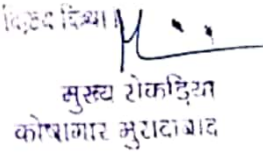 मुख्य रोकड़िया
कोषागार मुरादाबाद